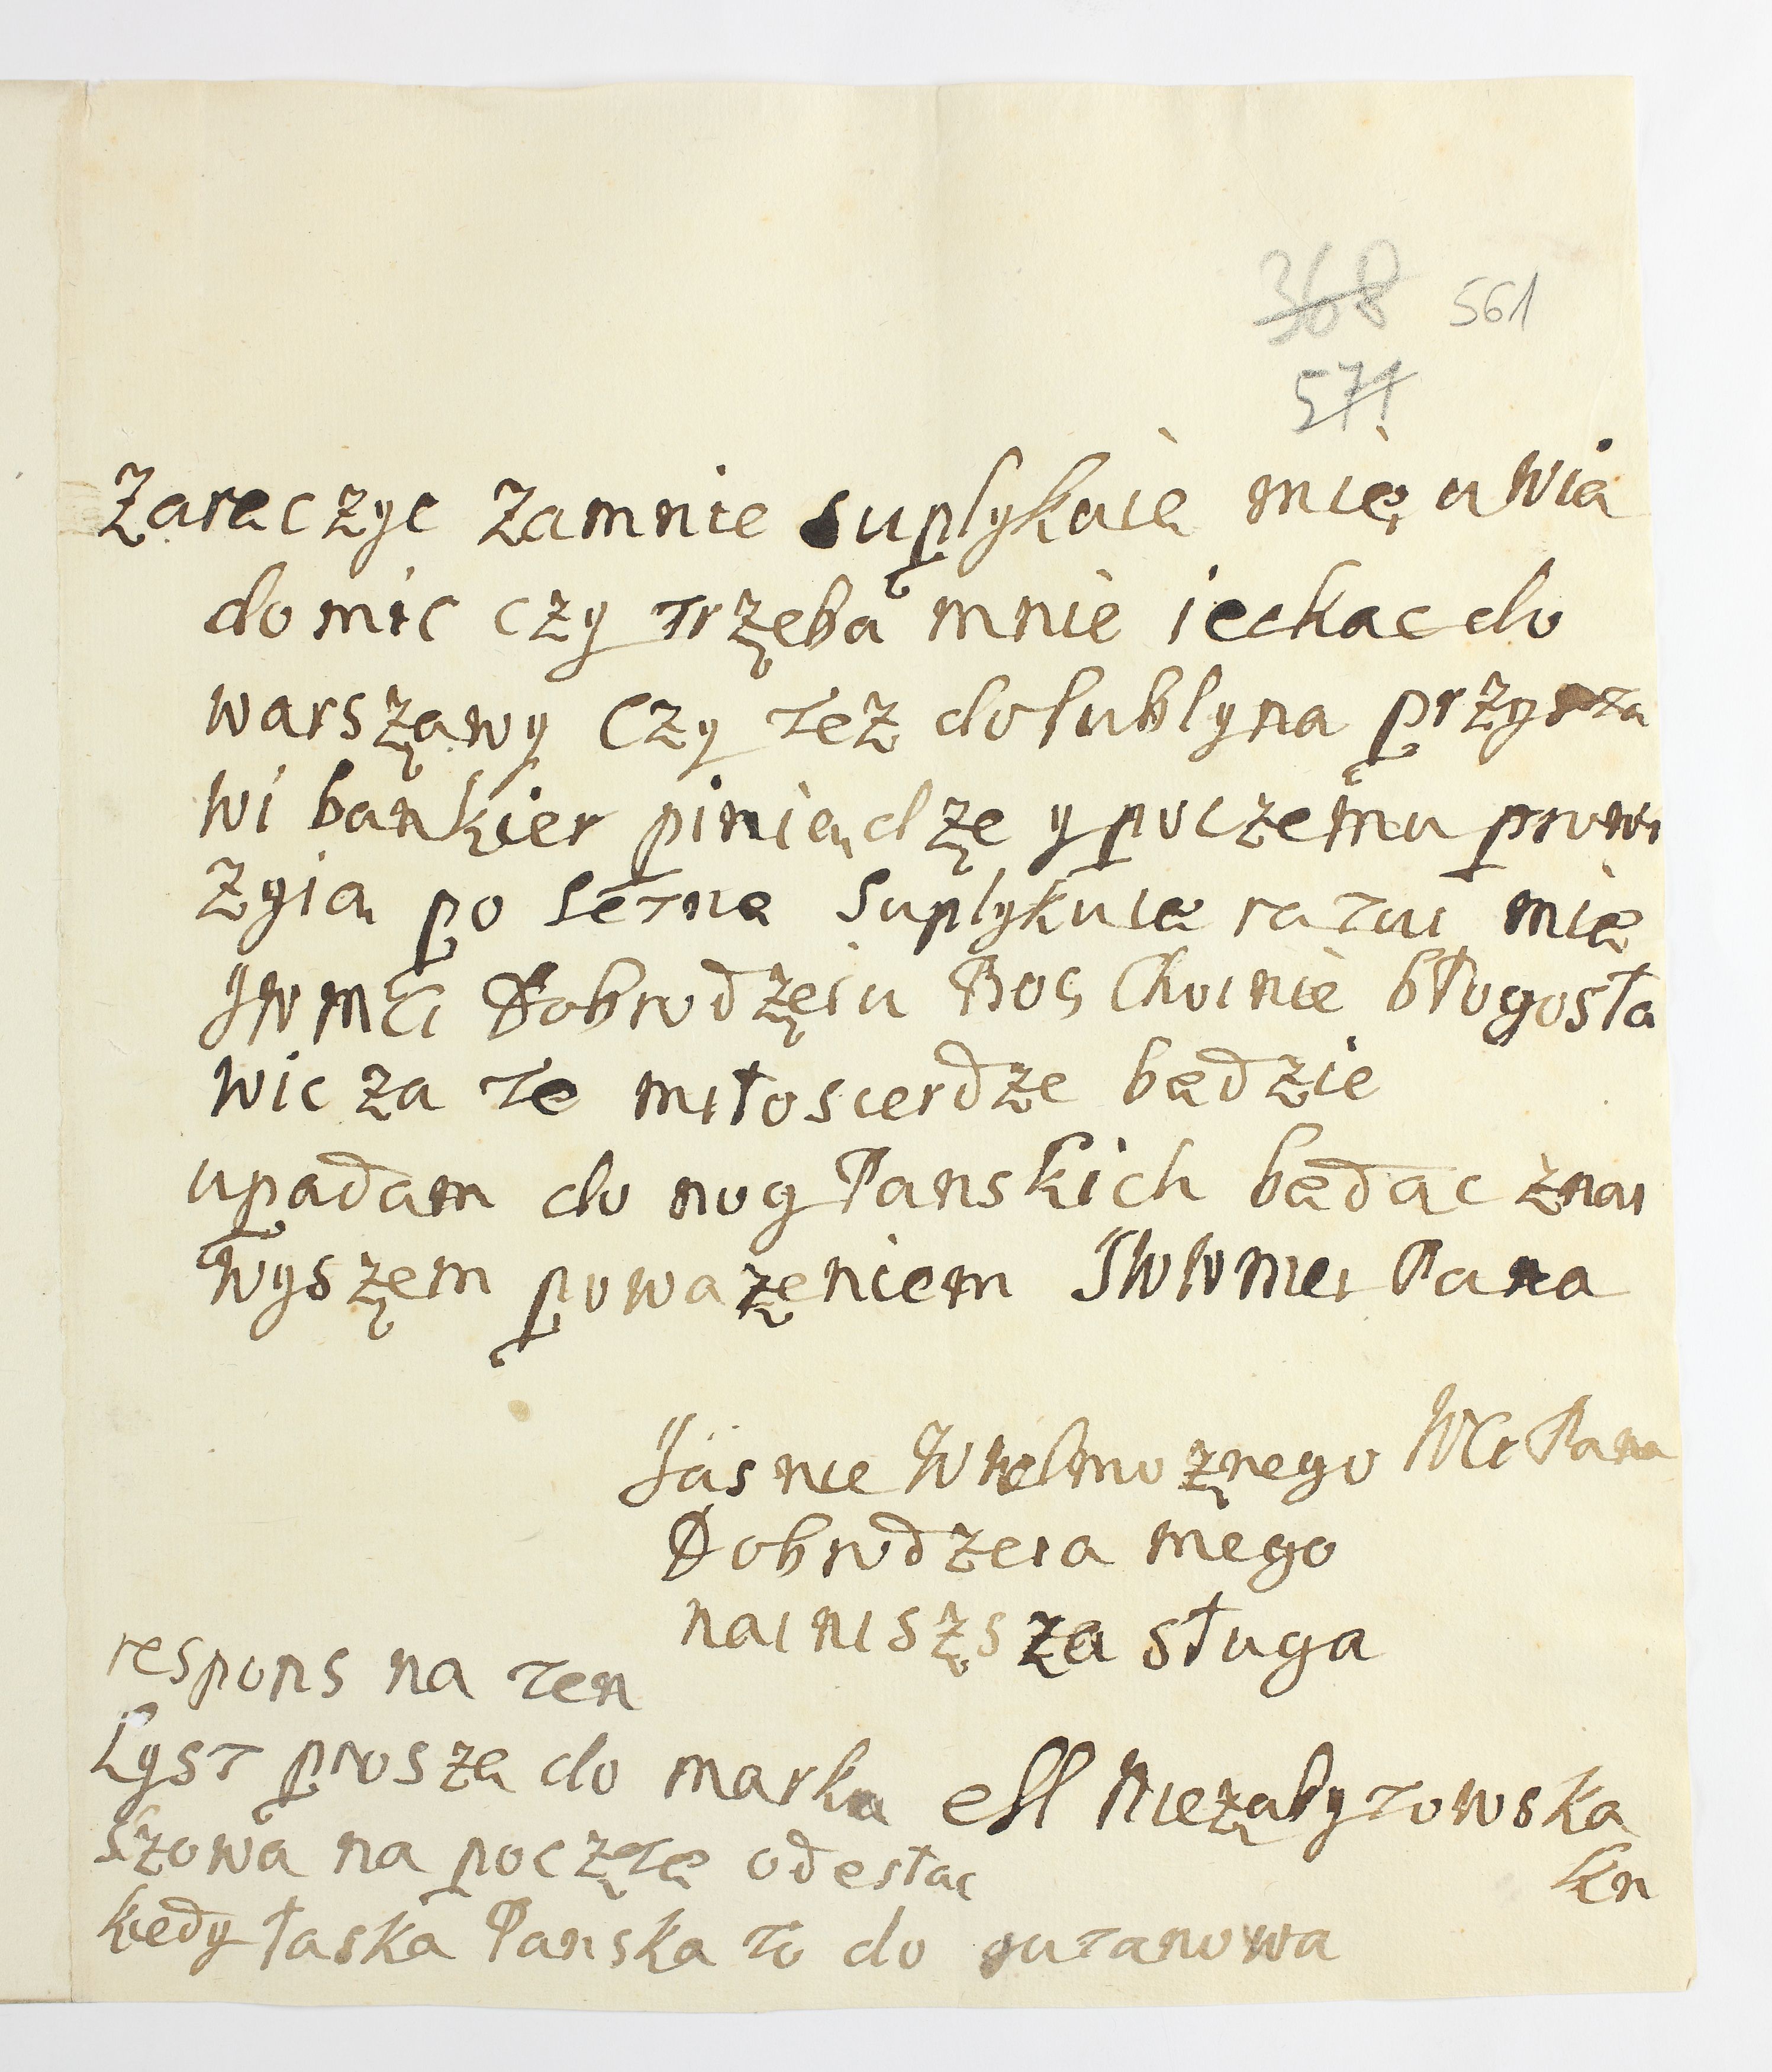 368 561
571
zaręczyc zamnie suplykuię mię uwia
domic czy trzeba mnie iechac do
warszawy czy tez dolublyna przysta
wi bankier piniądze y poczemu prowi
zyią po setne suplykuię ratui mię
JWMCi Dobrodzeiu Bog Choinie błogosła
wic za te miłoscerdze będzie
upadam do nog Panskich będąc znai
wyszem powazeniem JWWMCi Pana
Jasnie Wielmoznego MCi Pana
Dobrodzeia mego
nainiszsza sługa
respons na ten
Lyst proszę do marku
szowa na pocztę odesłac
Niezabytowska
kn
kiedy łaska Panska to do gutanowa